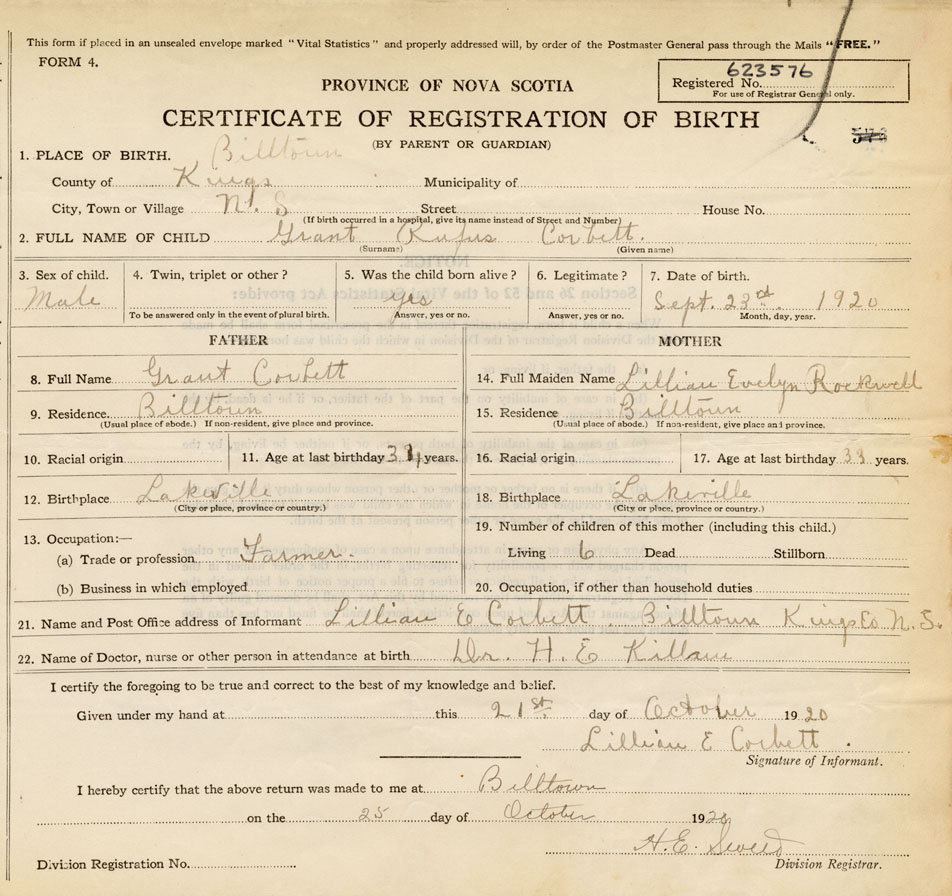 This form if placed in an unsealed envelope marked "Vital Statistics" and properly addressed will, by order of the Postmaster General pass through the Mails "FREE."
FORM 4.
623576
Registered No.
For use of Registrar General only.
PROVINCE OF NOVA SCOTIA
CERTIFICATE OF REGISTRATION OF BIRTH
(BY PARENT OR GUARDIAN)
1. PLACE OF BIRTH. Billtown
County of Kings Municipality of
City, Town or Village N. S Street House No.
(If birth occurred in a hospital, give its name instead of Street and Number)
2. FULL NAME OF CHILD Grant Rufus Corbett.
(Surname) (Given name)
3. Sex of child. 4. Twin, triplet or other? 5. Was the child born alive? 6. Legitimate? 7. Date of birth.
Male yes Sept. 23rd. 1920
To be answered only in the event of plural birth. Answer, yes or no. Answer, yes or no. Month, day, year.
FATHER MOTHER
8. Full Name Grant Corbett 14. Full Maiden Name Lillian Evelyn Rockwell
9. Residence Billtown 15. Residence Billtown
(Usual place of abode.) If non-resident, give place and province. (Usual place of abode.) If non-resident, give place and province.
10. Racial origin 11. Age at last birthday years. 16. Racial origin 17. Age at last birthday 33 years.
12. Birthplace Lakeville 18. Birthplace Lakeville
(City or place, province or country.) (City or place, province or country.)
13. Occupation:— 19. Number of children of this mother (including this child.)
(a) Trade or profession Farmer. Living 6 Dead Stillborn
(b) Business in which employed 20. Occupation, if other than household duties
21. Name and Post Office address of Informant Lillian E Corbett Billtown Kings Co N. S.
22. Name of Doctor, nurse or other person in attendance at birth Dr. H. E Killam
I certify the foregoing to be true and correct to the best of my knowledge and belief.
Given under my hand at this 21st. day of October 1920
Lillian E Corbett.
Signature of Informant.
I hereby certify that the above return was made to me at Billtown
on the 25 day of October 1920
H. E.
Division Registration No. Division Registrar.